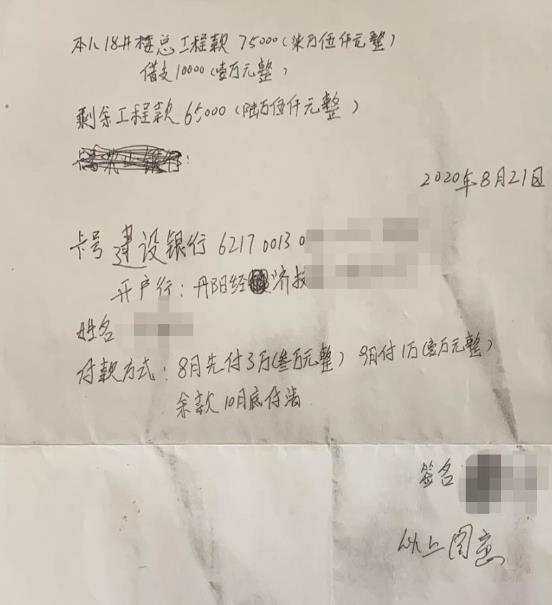 本人18井楼总工程款 75000(柒万伍仟元整)
借支10000(壹万元整)
剩余工程款65000(陆万伍仟元整)
2020年8月21日
卡号 建设银行 6217 0013 0
开户行:丹阳经济技
姓名
付款方式:8月先付3万(叁万元整) 9月付1万(壹万元整)
余款10月底付清
签名
以上同意